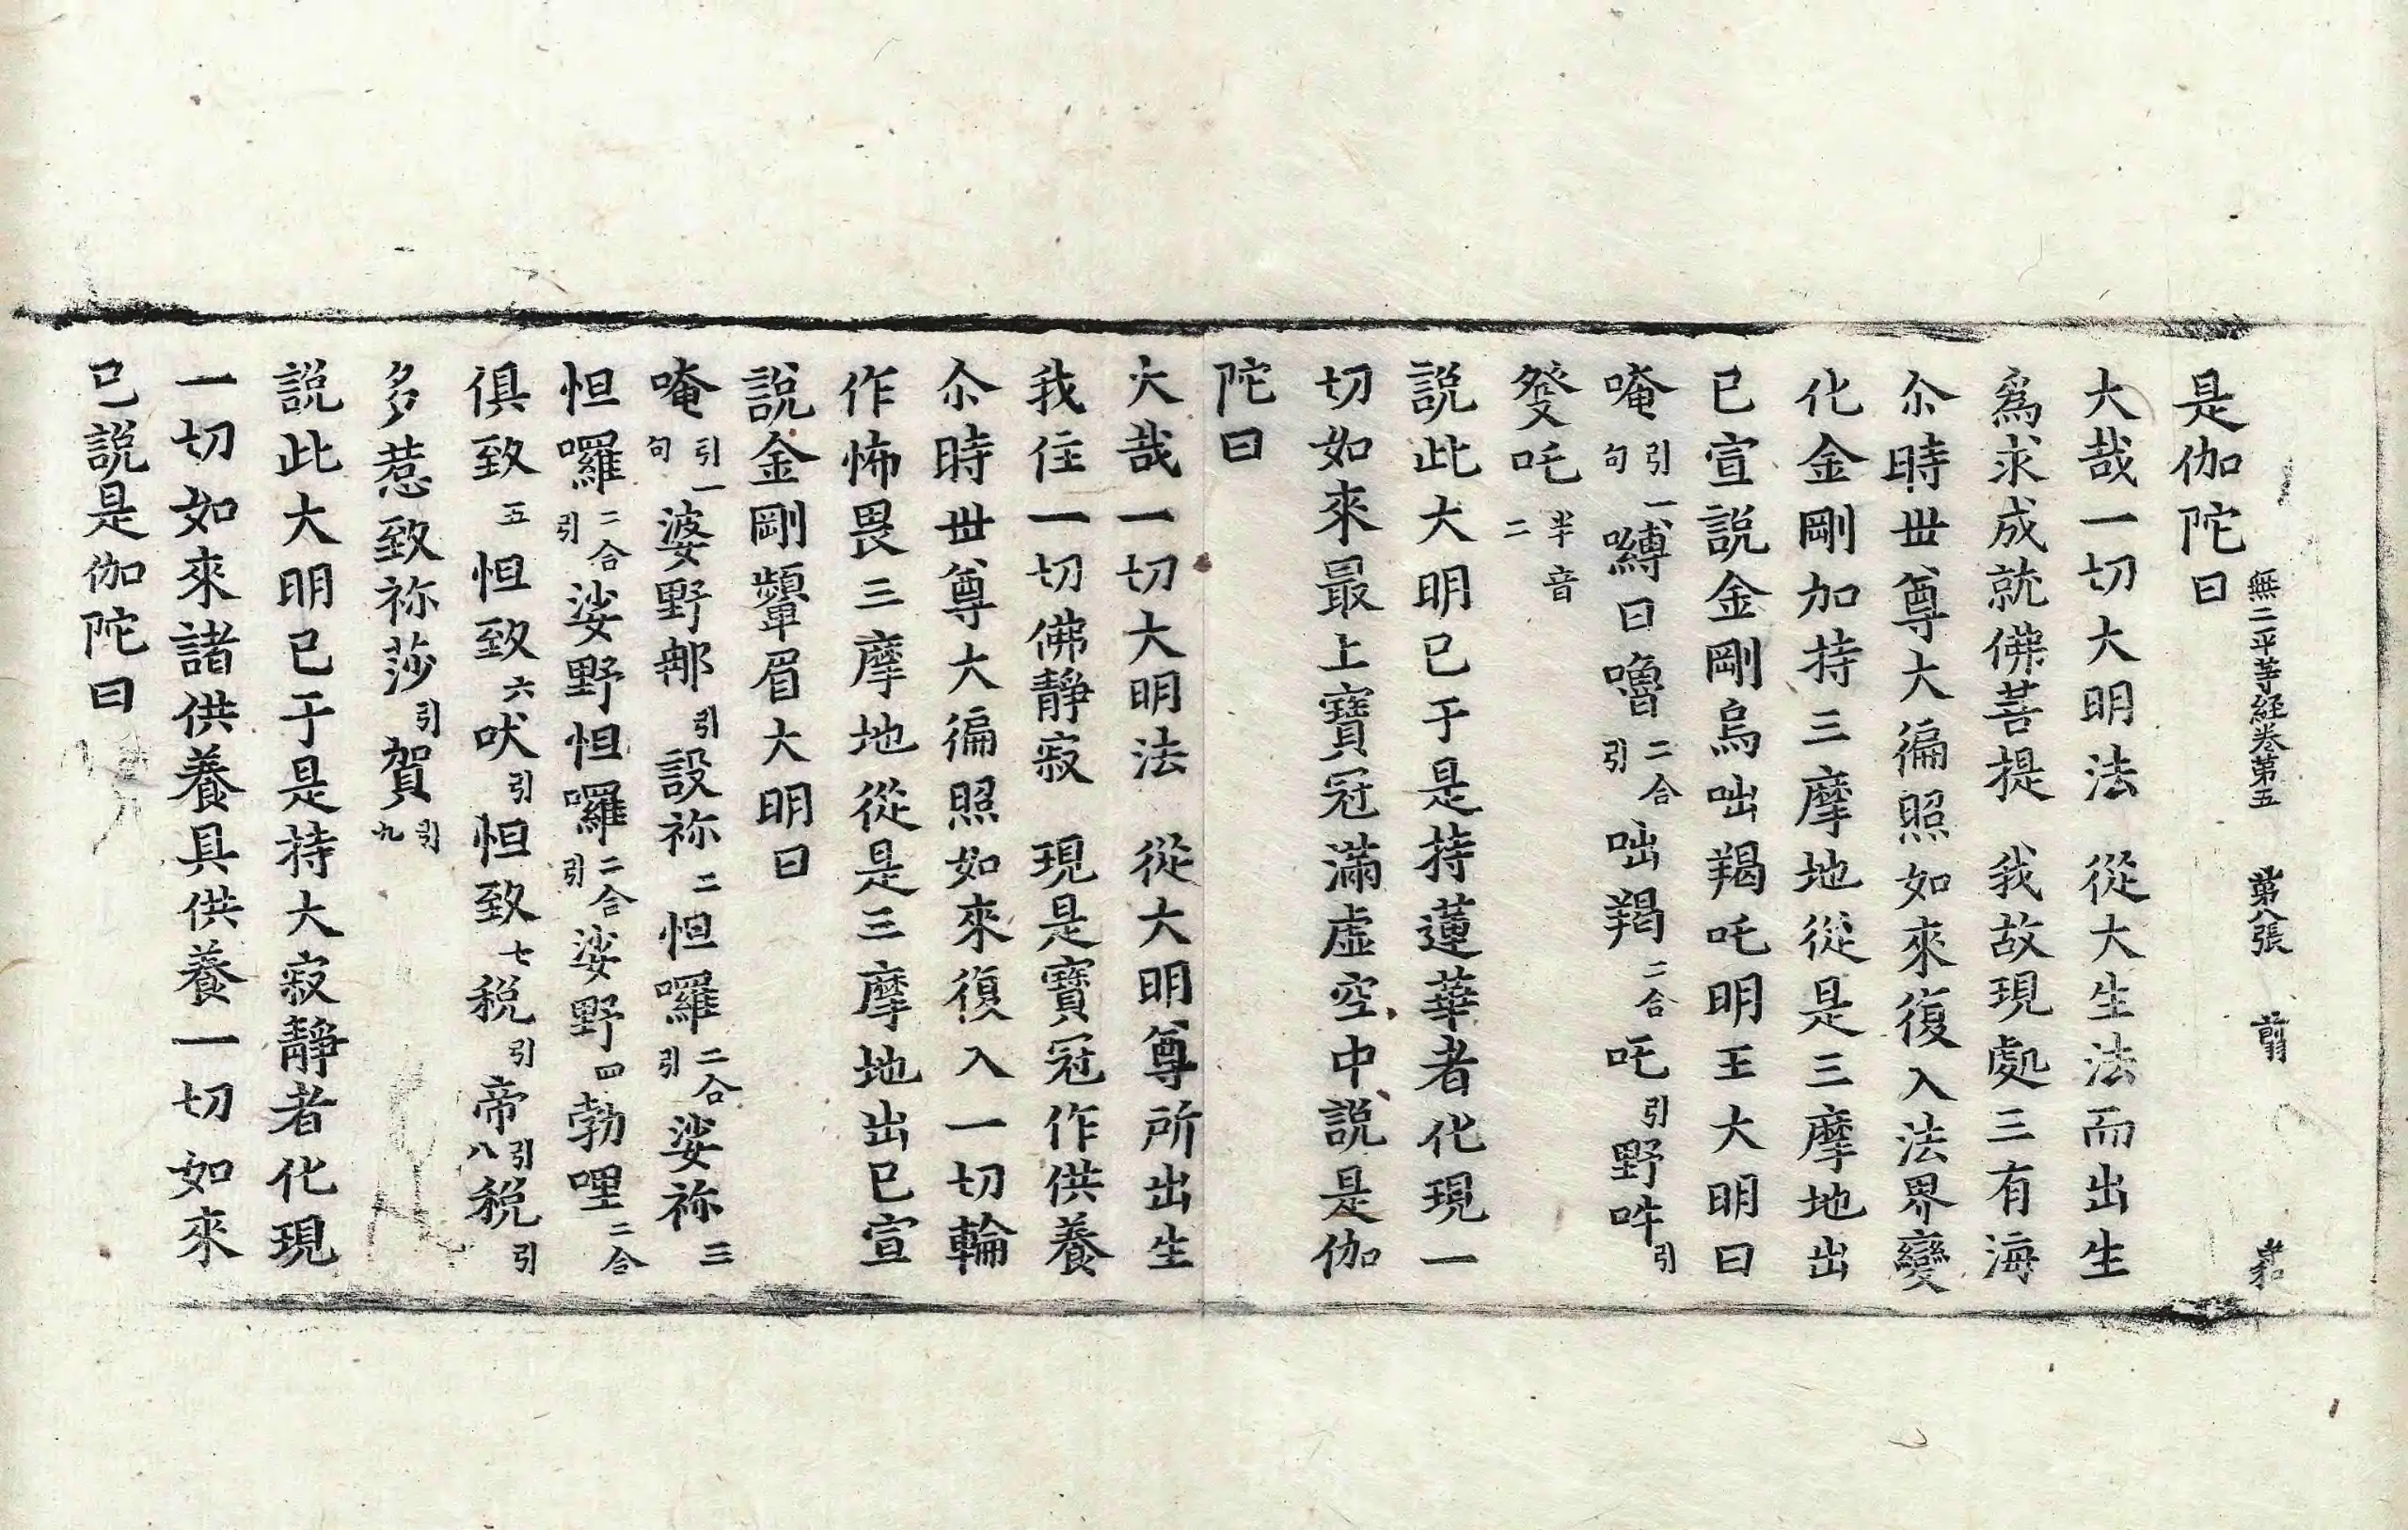 無二平等経卷第五 第八張 前
是伽陀曰
大哉一切大明法 從大生法而出生
爲求成就佛菩提 我故現處三有海
尒時丗尊大徧照如來復入法界變
化金剛加持三摩地從是三摩地出
已宣說金剛烏咄羯吒明王大明曰
唵引一句嚩日嚕二合引咄羯二合吒引野吽引
癹吒半音二
說此大明已于是持蓮華者化現一
切如來最上寶冠滿虛空中說是伽
陀曰
大哉一切大明法 從大明尊所出生
我住一切佛靜寂 現是寶冠作供養
尒時丗尊大徧照如來復入一切輪
作怖畏三摩地從是三摩地出已宣
說金剛顰眉大明曰
唵引一句婆野那引設祢二怛囉二合引娑祢三
怛囉二合引娑野怛囉二合引娑野四勃哩二合
俱致五怛致六吠引怛致七稅引帝引八稅引
多惹致祢莎引賀引九
說此大明已于是持大寂靜者化現
一切如來諸供養具供養一切如來
已說是伽陀曰